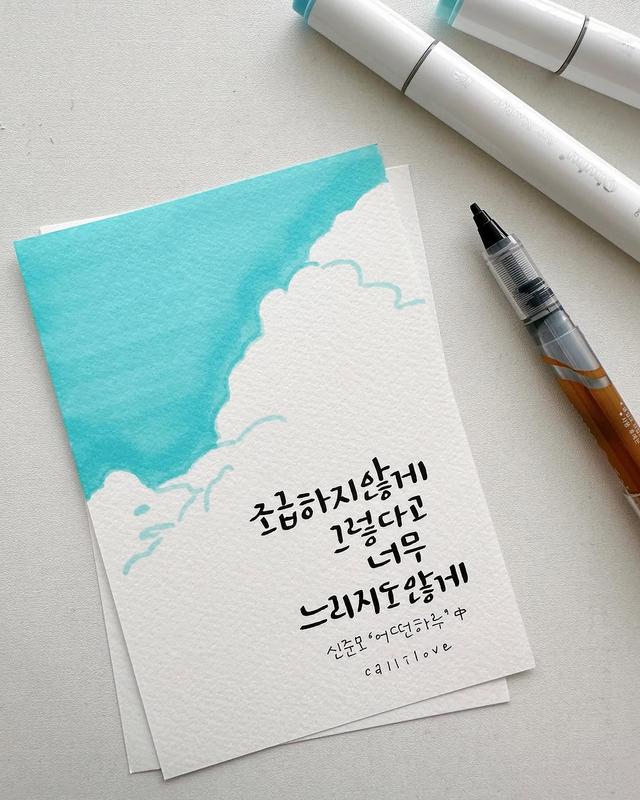 조급하지않게
그렇다고
너무
느리지도않게
신준모 '어떤하루' 中
callilove